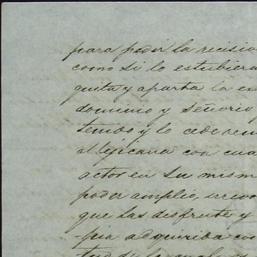 para pedir la recisio
como si lo estubiera
quita y aparta la en
dominio y señorio
tenido y lo cede renu
Mejicana con cua
actor en su mism
poder amplio, irrevo
que las desfrute y
adquirida